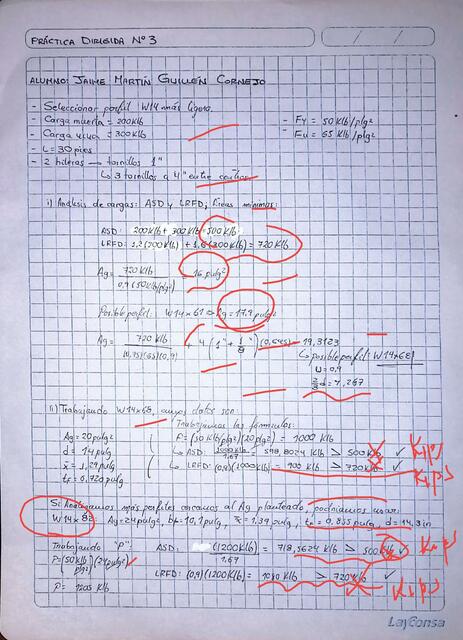 PRÁCTICA DIRIGIDA Nº3
ALUMNO: JAIME MARTÍN GUILLÉN CORNEJO
- Seleccionar perfil W14 más ligero.
- Carga muerta = 200Klb
- Carga viva = 300Klb
- L = 30 pies
- 2 hileras → tornillos 1"
↳ 3 tornillos a 4" entre centros.
- Fy = 50 Klb/plg²
- Fu = 65 Klb/plg²
i) Análisis de cargas: ASD y LRFD; Áreas mínimas:
ASD: 200Klb + 300Klb = 500Klb
LRFD: 1,2(200Klb) + 1,6(300Klb) = 720Klb
Ag = 720Klb / 0,9(50Klb/plg²) = 16 pulg²
Posible perfil: W14x61 → Ag = 17,9 pulg²
Ag = 720 Klb / (0,75)(65)(0,9) + 4(1" + 1/8")(0,645) = 19,3123
↳ posible perfil: W14x68
U = 0,9
d = 7,267
ii) Trabajando W14x68, cuyos datos son:
Trabajamos las fórmulas:
Ag = 20 pulg²
d = 14 pulg
x̄ = 1,29 pulg
tf = 0,720 pulg
P = (50 Klb/plg²)(20 plg²) = 1000 Klb
↳ ASD: 1000Klb / 1.67 = 598,8024 Klb > 500 Klb ✓ Kips
↳ LRFD: (0,9)(1000Klb) = 900 Klb > 720 Klb ✓ Kips
Si Analizamos más perfiles cercanos al Ag planteado, podríamos usar:
W14x82: Ag = 24 pulg², bf = 10,1 pulg, x̄ = 1,39 pulg, tf = 0,855 pulg, d = 14,3 in
Trabajando "P".
P = (50Klb/plg²)(24 pulg²)
P = 1200 Klb
ASD: (1200Klb) / 1.67 = 718,5624 Klb > 500 Klb ✓ Kips
LRFD: (0,9)(1200Klb) = 1080 Klb > 720 Klb ✓ Kips
Layconsa